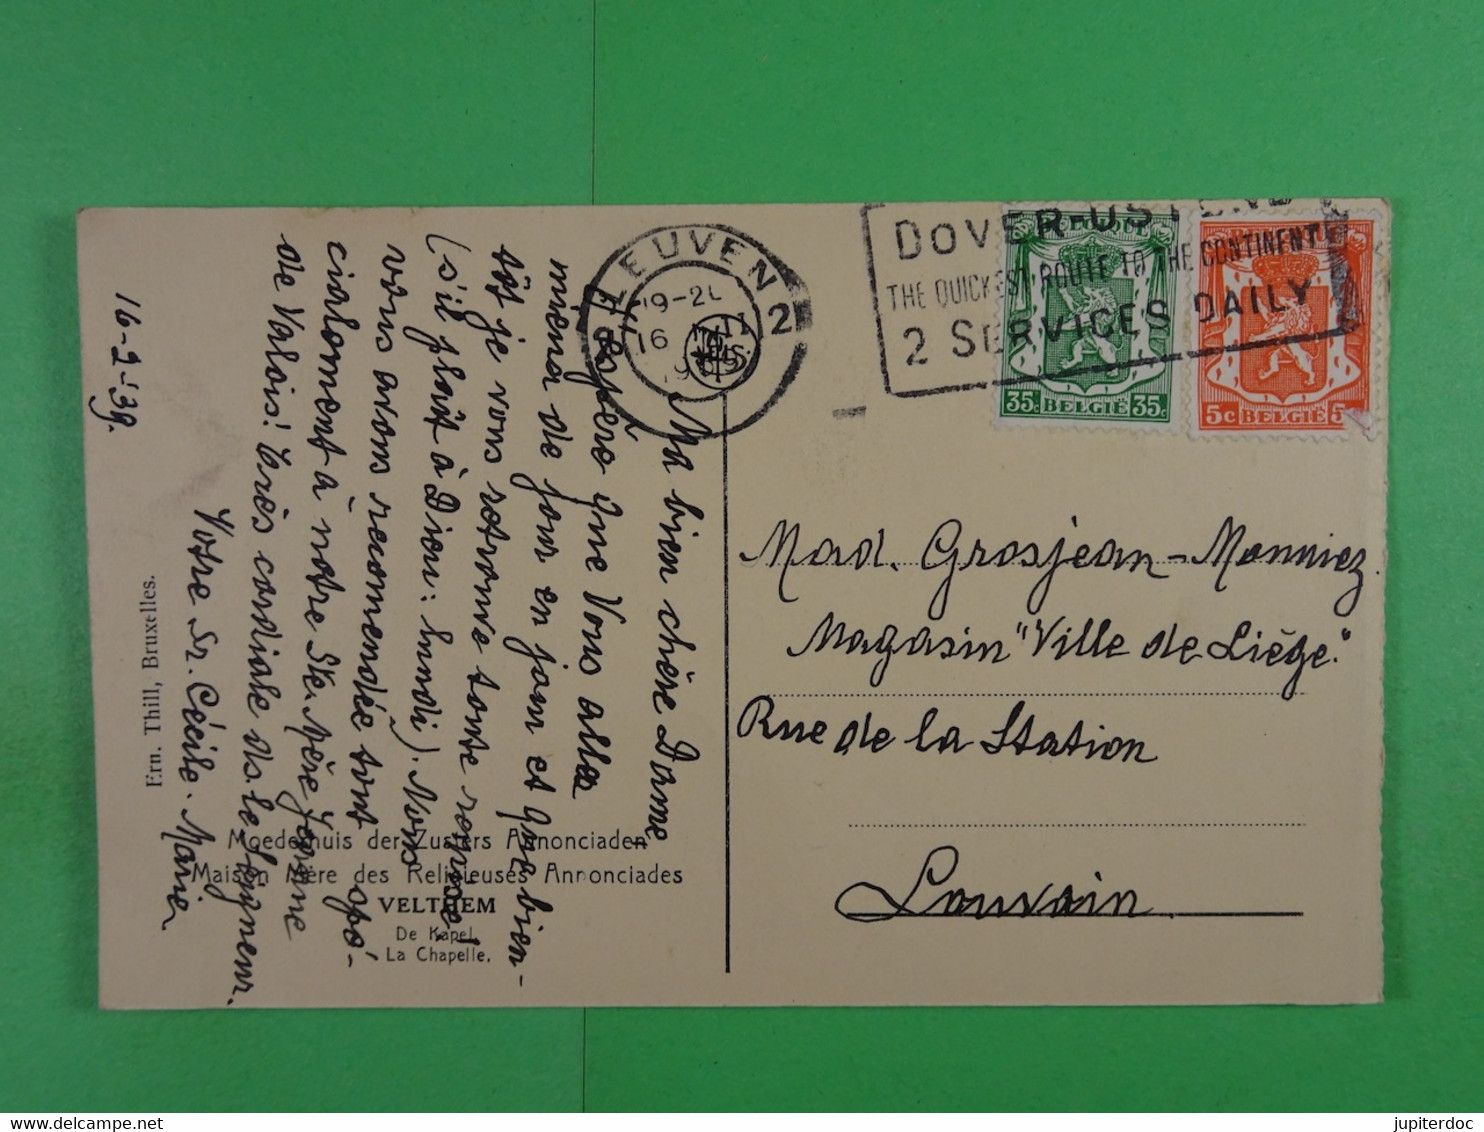 Ma bien chère Dame
J'espère que Vous allez
mieux de jour en jour et que bien-
tôt je vous retrouve toute remise!
(s'il plaît à Dieu: lundi). Nous
vous avons recommandée tout spé-
cialement à notre Ste. Mère Jeanne
de Valois! Très cordiale ds. le Seigneur.
Votre Sr. Cécile-Marie
16-2-'39.
Ern. Thill, Bruxelles.
Moederhuis der Zusters Annonciaden
Maison Mère des Religieuses Annonciades
VELTHEM
De Kapel
La Chapelle.
LEUVEN 2
16
DOVER-OSTEND
THE QUICKEST ROUTE TO THE CONTINENT
2 SERVICES DAILY
35c BELGIË 35c
5c BELGIË 5
Mad. Grosjean-Monniez
Magasin "Ville de Liège"
Rue de la Station
Louvain
jupiterdoc